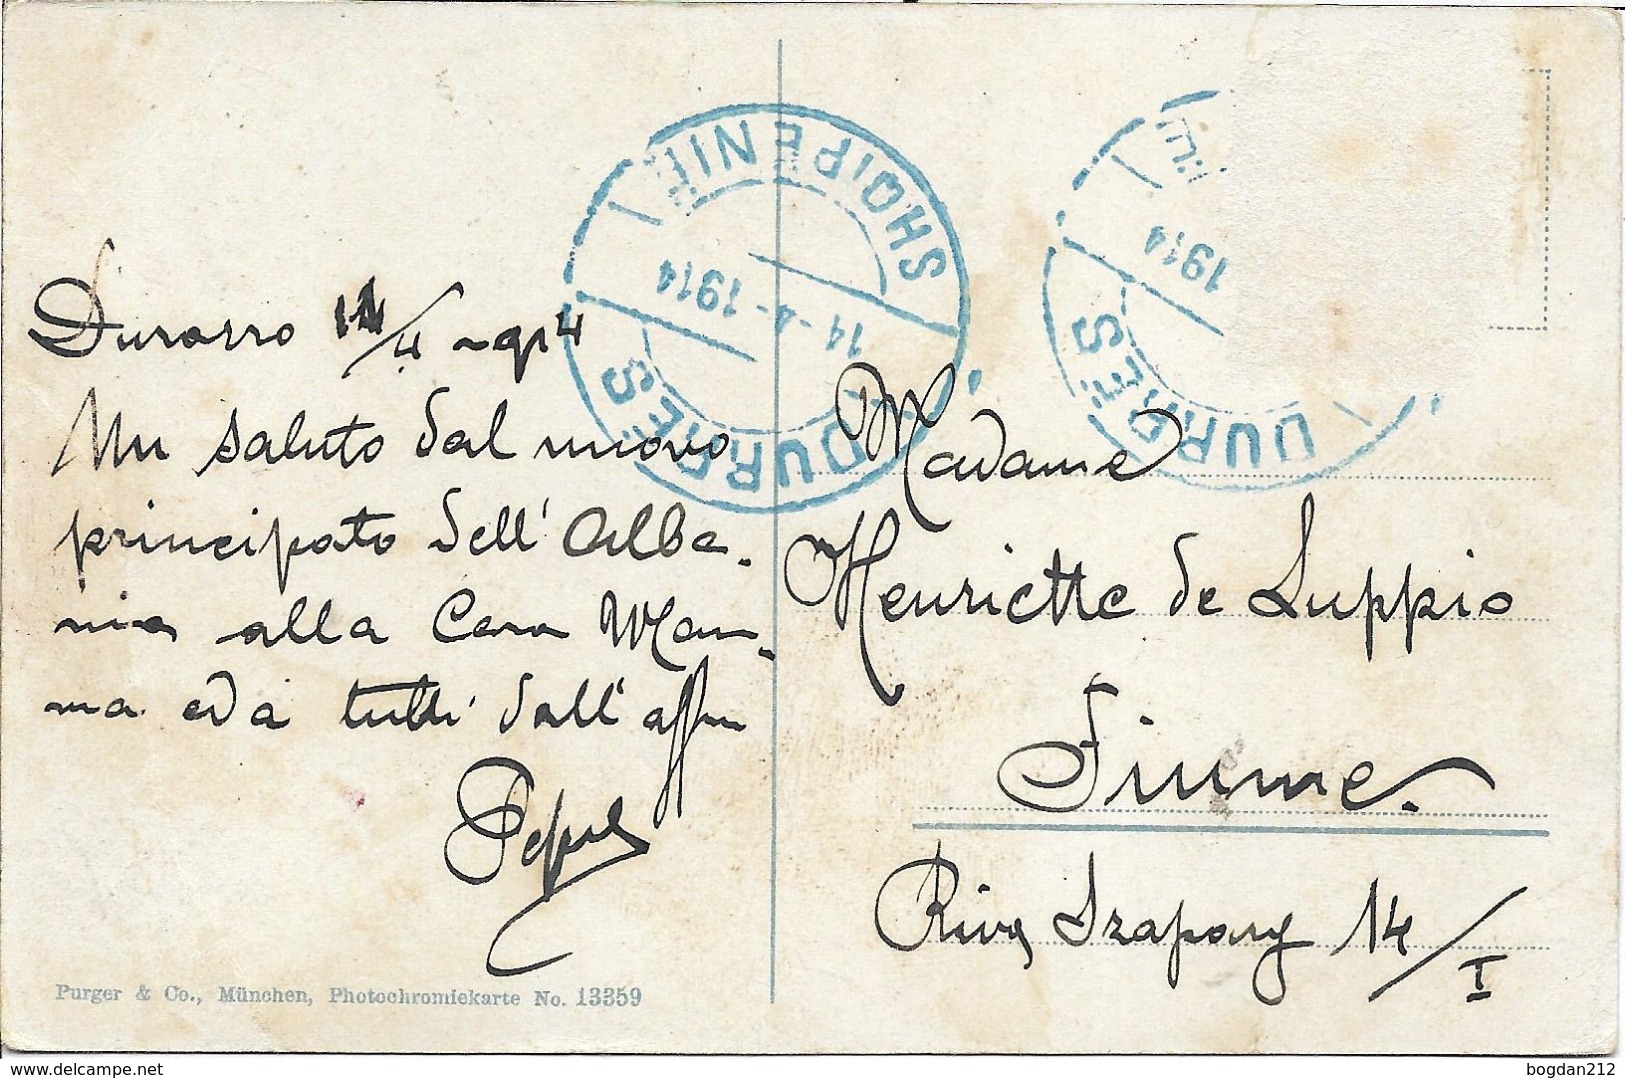 SHQIPENIE
14-4-1914
DURRËS
1914
DURRËS
Durazzo 14/4 - 914
Un saluto dal nuovo
principato dell' Alba-
nia alla Cara Mam-
ma ed a tutti dall' aff
Madame
Henriette de Luppis
Fiume.
Riva Szapary 14/I
Purger & Co., München, Photochromiekarte No. 13359
bogdan212